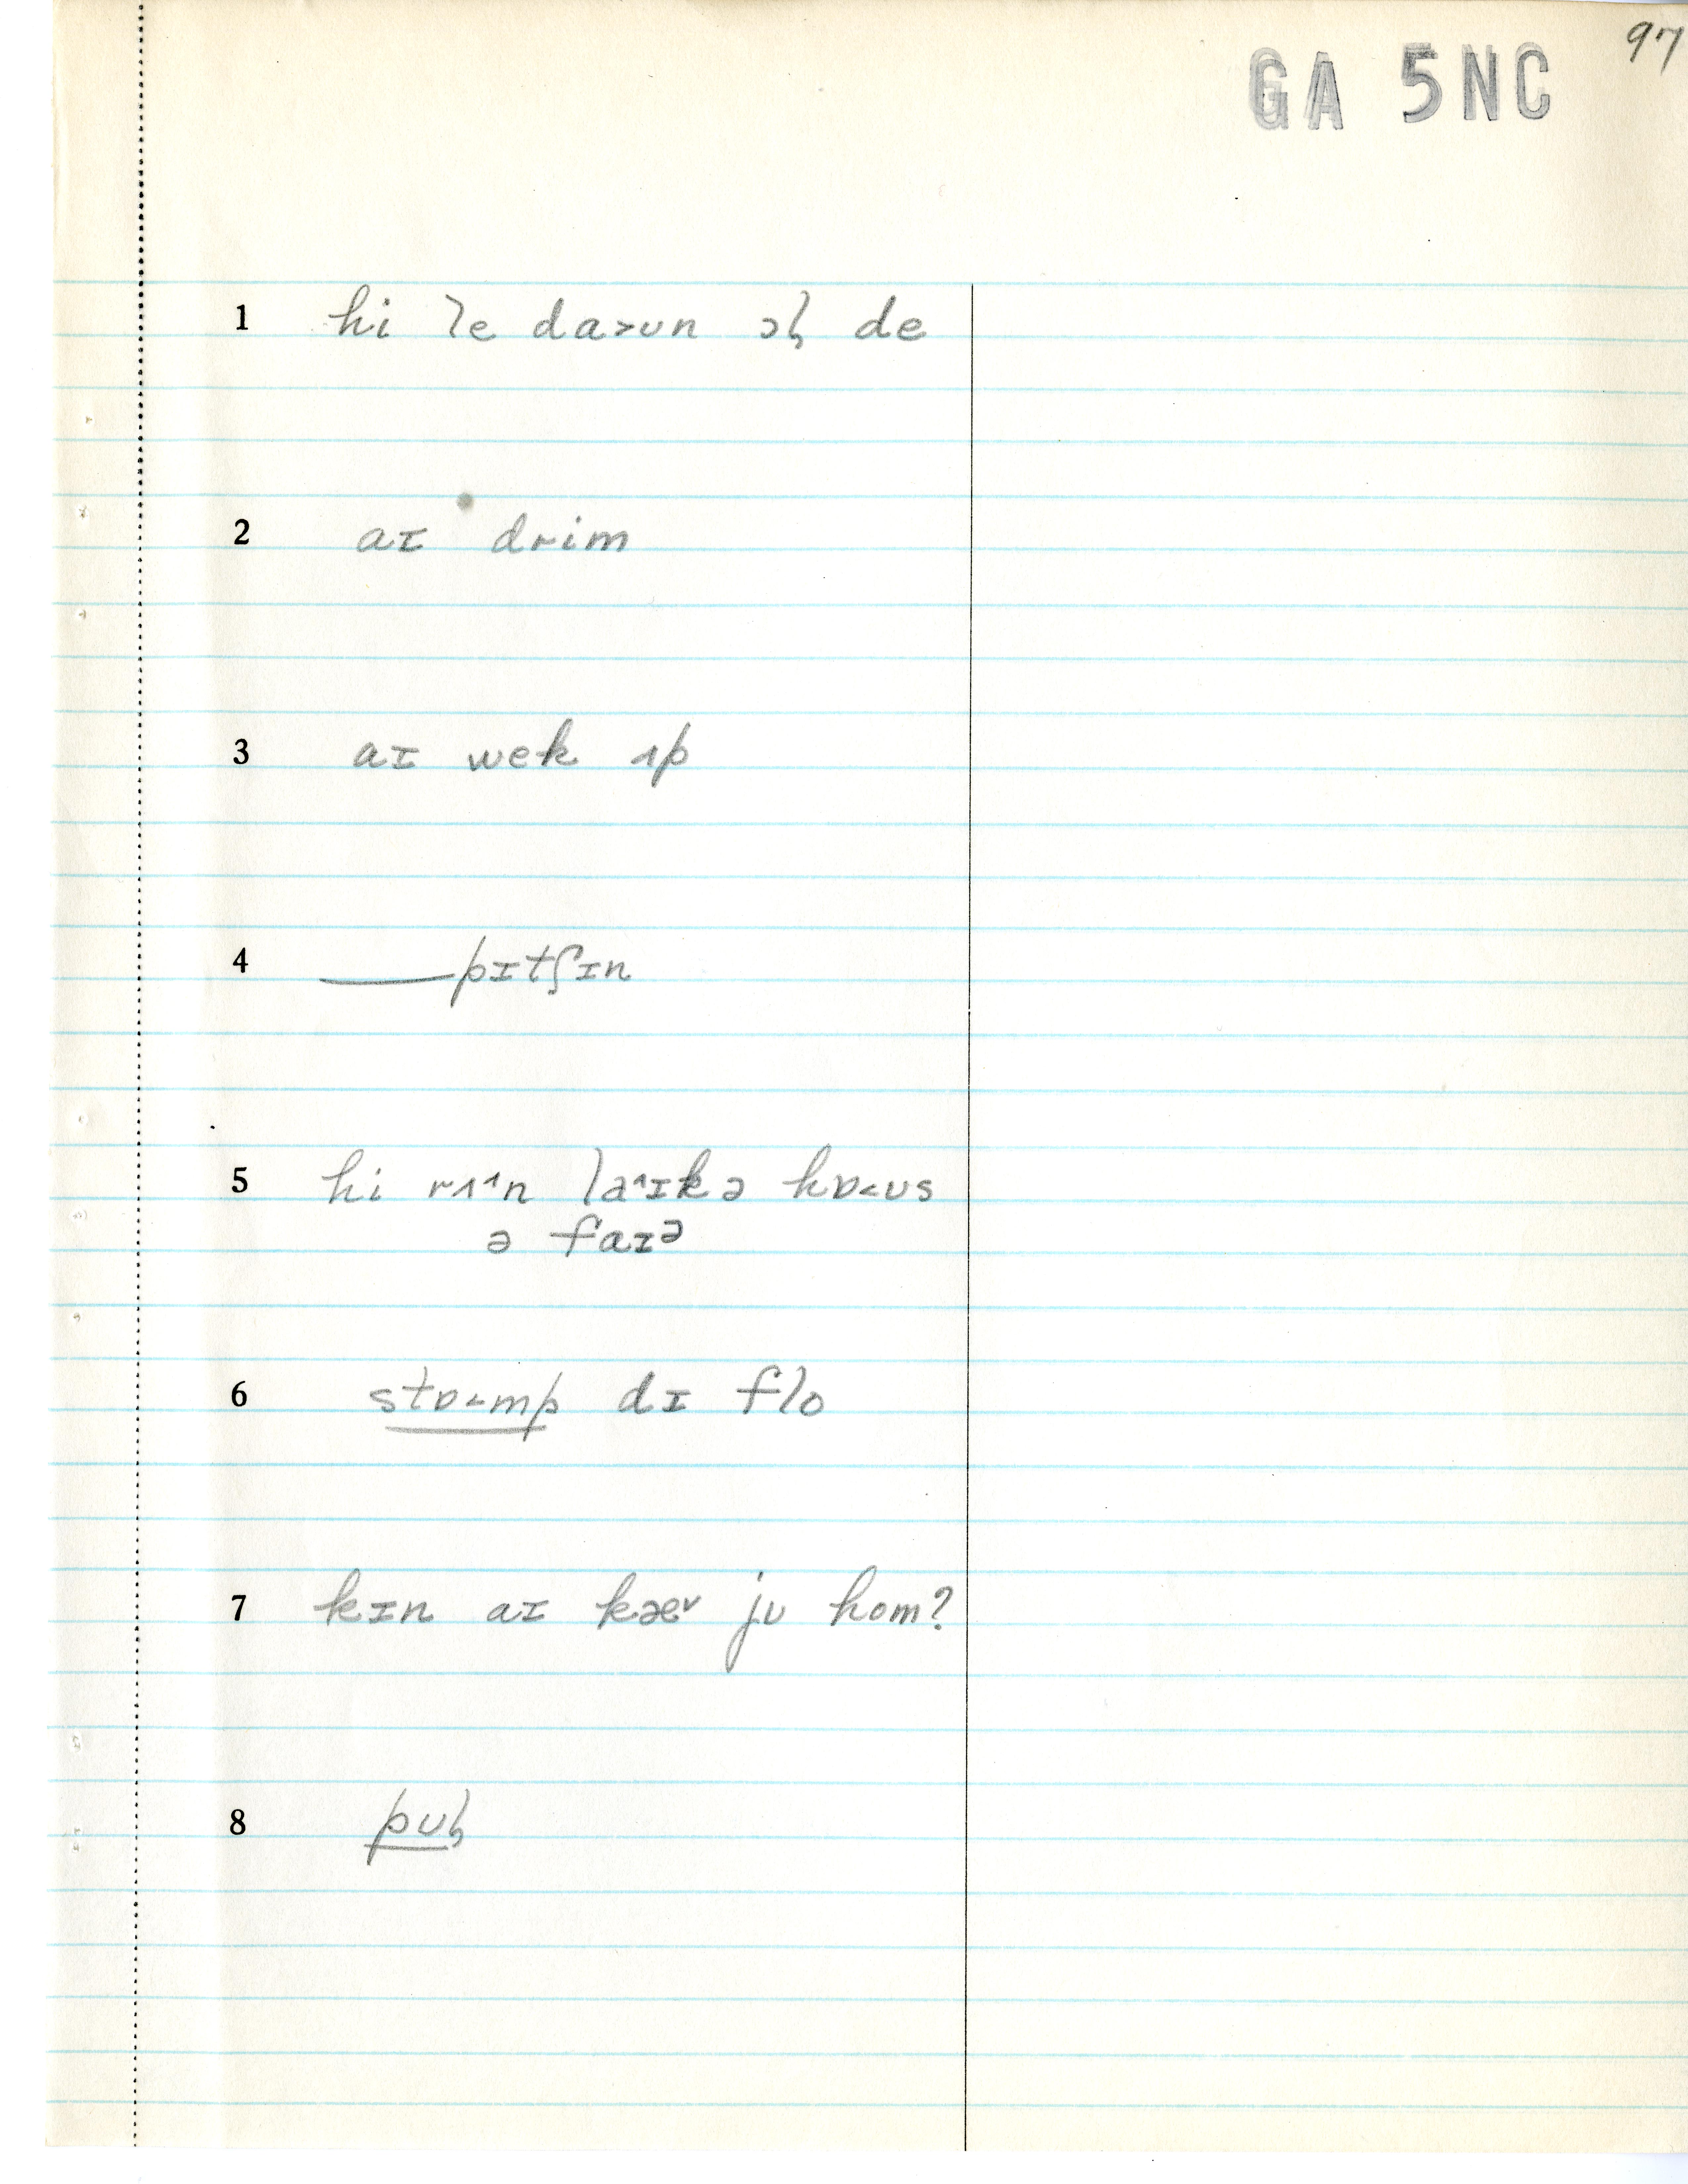 97
GA 5NC
1 hi le da>ʊn ɔɫ de
2 aɪ drim
3 aɪ wek ʌp
4 ___pɪtʃɪn
5 hi rʌ^n la^ɪk ə hɒ<ʊs
ə faɪᵊ
6 stɒ<mp dɪ flo
7 kɪn aɪ kæɛ˅ jʊ hom?
8 pʊɫ